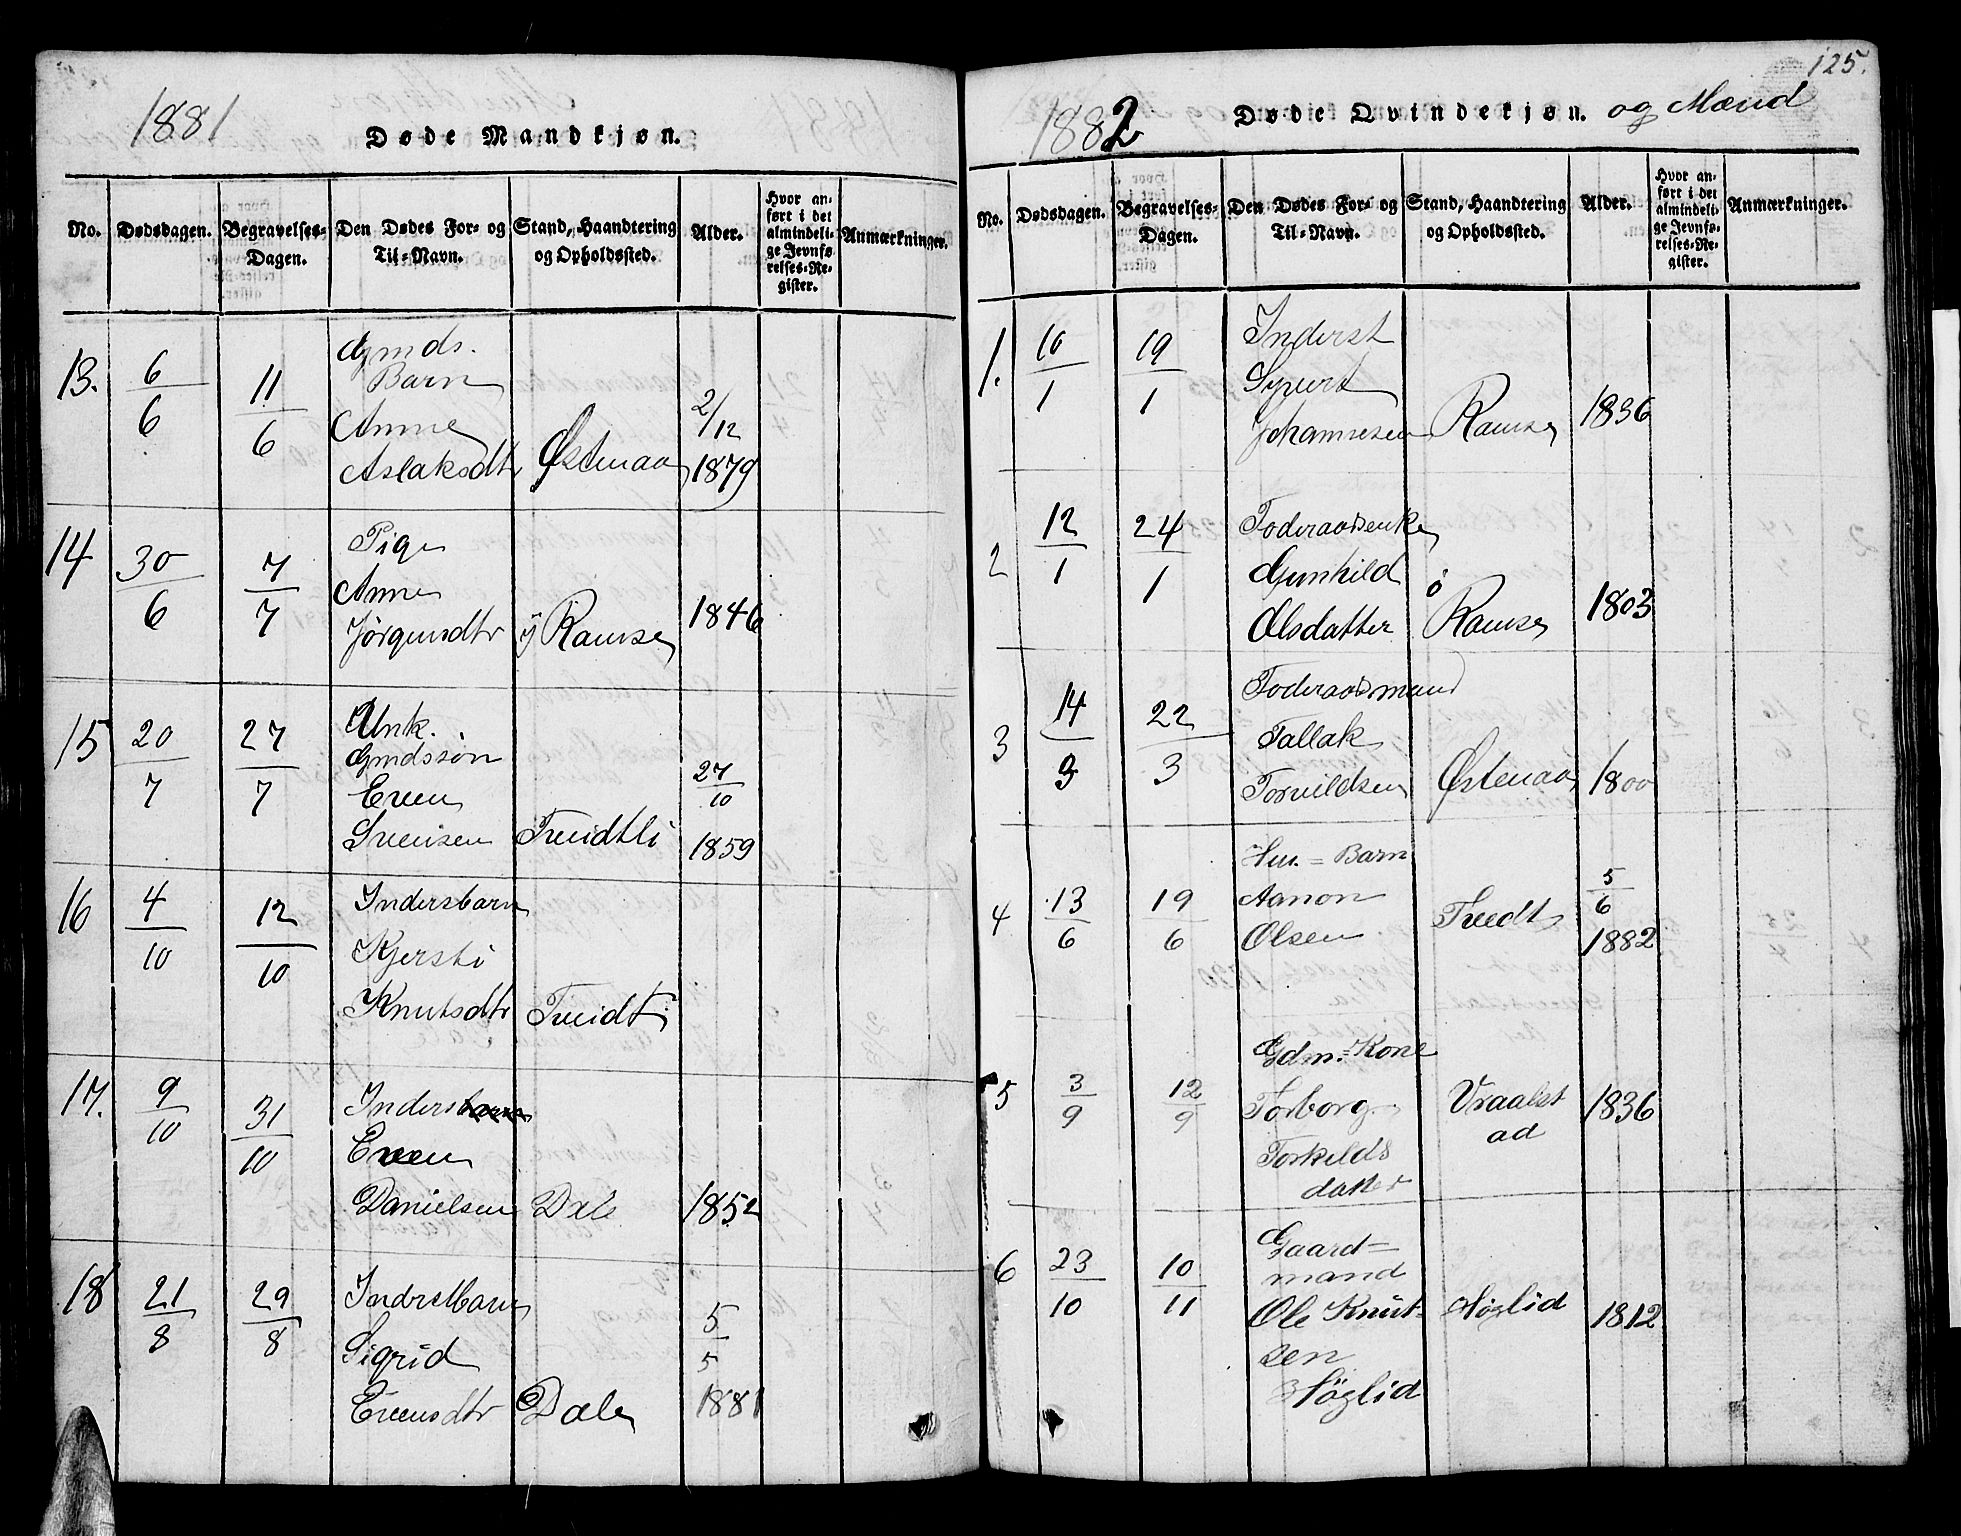 1881
Døde Mandkjøn.
No.
Dødsdagen.
Begravelses-
Dagen.
Den Dødes For- og
Til-Navn.
Stand, Haandtering
og Opholdssted.
Alder.
Hvor an-
ført i det
almindeli-
ge Jevnfø-
relses-Re-
gister.
Anmærkninger.
13.
6/6
11/6
Gmds.
Barn
Anne
Aslaksdtr
Østenaa
2/12
1879
14
30/6
7/7
Pige
Anne
Jørgensdtr
Ramse
1846
15
20/7
27/7
Unk.
Gmdssøn
Even
Svensen
Tveidtli
27/10
1859
16
4/10
12/10
Indersbarn
Kjersti
Knutsdtr
Tveidt
17.
9/10
31/10
Inders
Even
Danielsen
Dale
1852
18
21/8
29/8
Indrstbarn
Sigrid
Evensdtr
Dale
5/5
1881
125.
1882
Døde Qvindekjøn. og Mænd
No.
Dødsdagen.
Begravelses-
Dagen.
Den Dødes For- og
Til-Navn.
Stand, Haandtering
og Opholdssted.
Alder.
Hvor an-
ført i det
almindeli-
ge Jevnfø-
relses-Re-
gister.
Anmærkninger.
1.
10/1
19/1
Inderst
Syvert
Johannesen
Ramse
1836
2
12/1
24/1
Foderaadsenke
Gunhild
Olsdatter
Ramse
1803
3
14/3
22/3
Foderaadsmand
Tallak
Torvildsen
Østenaa
1800
4
13/6
19/6
Hm. = Barn
Aanon
Olsen
Tvedt
5/6
1882
5
3/9
12/9
Gdm.=Kone
Torborg
Torkilds
datter
Vraalst
ad
1836
6
23/10
10/11
Gaard=
mand
Ole Knut-
sen
Høglid
Høglid
1812